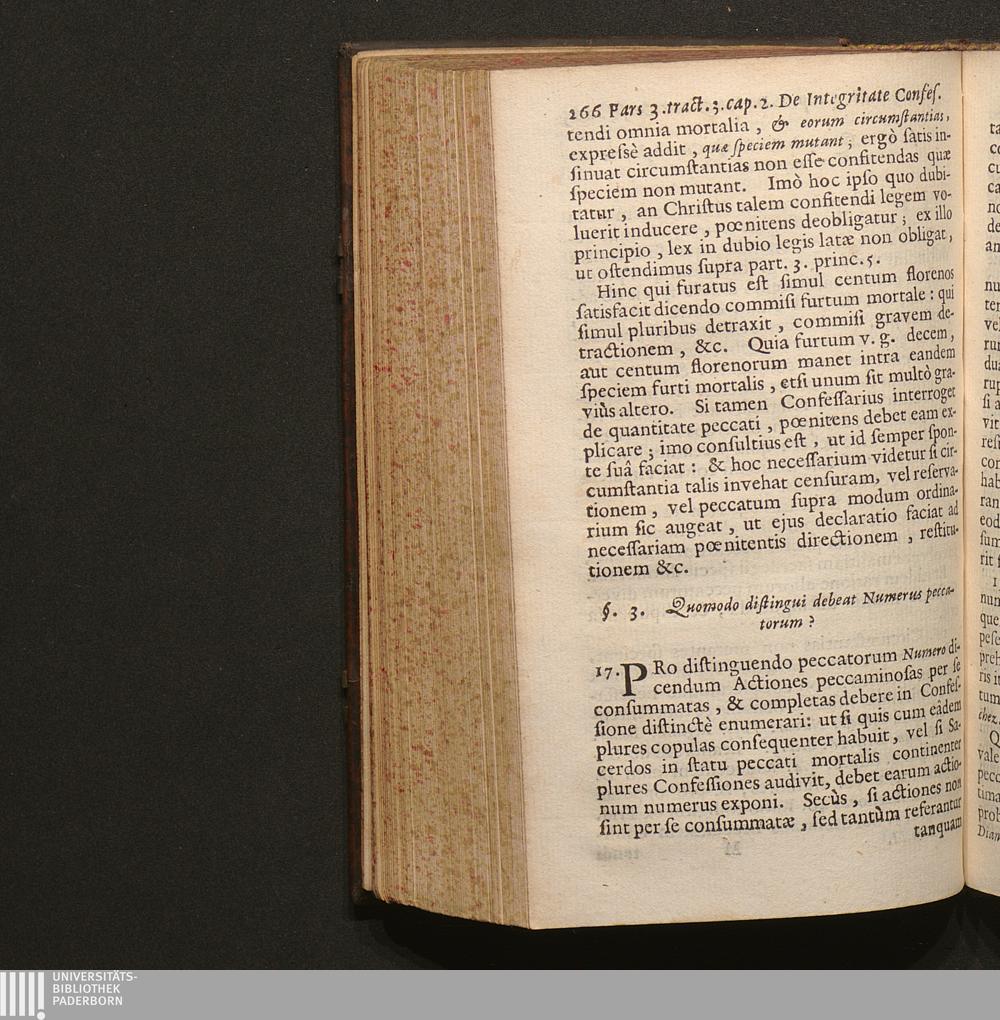 266 Pars 3. tract. 3. cap. 2. De Integritate Confeſ.
tendi omnia mortalia, & eorum circumſtantias,
expreſsè addit, quæ ſpeciem mutant; ergò ſatis in-
ſinuat circumſtantias non eſſe confitendas quæ
ſpeciem non mutant. Imò hoc ipſo quo dubi-
tatur, an Chriſtus talem confitendi legem vo-
luerit inducere, pœnitens deobligatur; ex illo
principio, lex in dubio legis latæ non obligat,
ut oſtendimus ſupra part. 3. princ. 5.
Hinc qui furatus eſt ſimul centum florenos
ſatisfacit dicendo commiſi furtum mortale: qui
ſimul pluribus detraxit, commiſi gravem de-
tractionem, &c. Quia furtum v. g. decem,
aut centum florenorum manet intra eandem
ſpeciem furti mortalis, etſi unum ſit multò gra-
viùs altero. Si tamen Confeſſarius interroget
de quantitate peccati, pœnitens debet eam ex-
plicare; imo conſultius eſt, ut id ſemper ſpon-
te ſuâ faciat: & hoc neceſſarium videtur ſi cir-
cumſtantia talis invehat cenſuram, vel reſerva-
tionem, vel peccatum ſupra modum ordina-
rium ſic augeat, ut ejus declaratio faciat ad
neceſſariam pœnitentis directionem, reſtitu-
tionem &c.
§. 3. Quomodo diſtingui debeat Numerus pecca-
torum?
17. PRo diſtinguendo peccatorum Numero di-
cendum Actiones peccaminoſas per ſe
conſummatas, & completas debere in Confeſ-
ſione diſtinctè enumerari: ut ſi quis cum eâdem
plures copulas conſequenter habuit, vel ſi Sa-
cerdos in ſtatu peccati mortalis continenter
plures Confeſſiones audivit, debet earum actio-
num numerus exponi. Secùs, ſi actiones non
ſint per ſe conſummatæ, ſed tantùm referantur
tanquam
UNIVERSITÄTS-
BIBLIOTHEK
PADERBORN